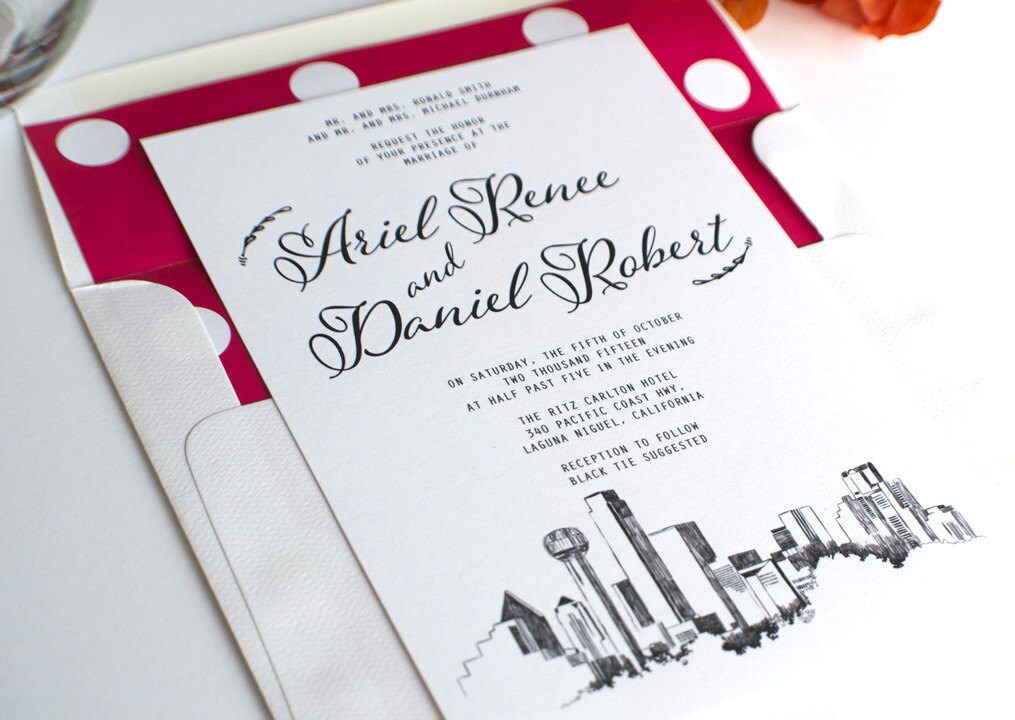 MR. AND MRS. RONALD SMITH
AND MR. AND MRS. MICHAEL DURNHAM
REQUEST THE HONOR
OF YOUR PRESENCE AT THE
MARRIAGE OF
Ariel Renee
and
Daniel Robert
ON SATURDAY, THE FIFTH OF OCTOBER
TWO THOUSAND FIFTEEN
AT HALF PAST FIVE IN THE EVENING
THE RITZ CARLTON HOTEL
340 PACIFIC COAST HWY,
LAGUNA NIGUEL, CALIFORNIA
RECEPTION TO FOLLOW
BLACK TIE SUGGESTED